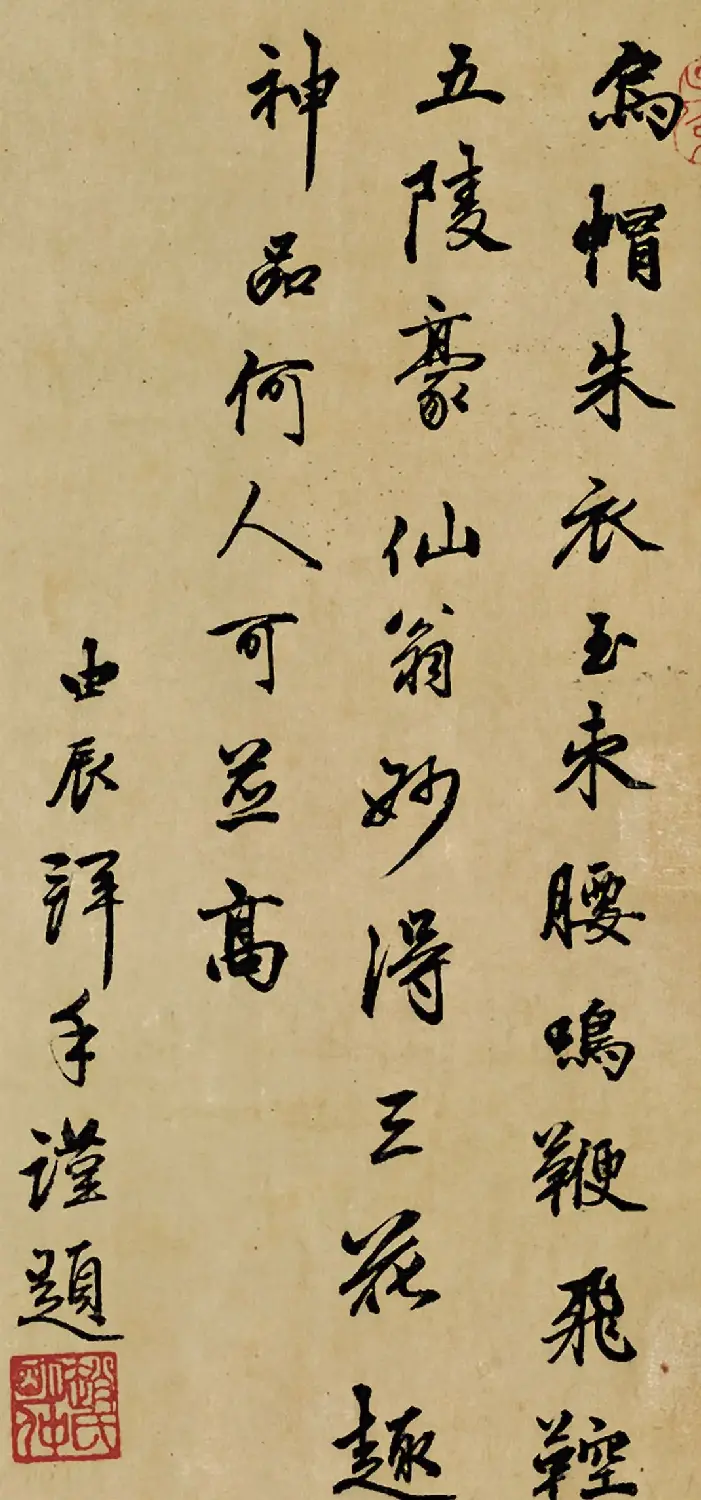 烏帽朱衣玉束腰鳴鞭飛鞚
五陵豪仙翁妙得三花趣
神品何人可並高
由辰拜手謹題
趙氏